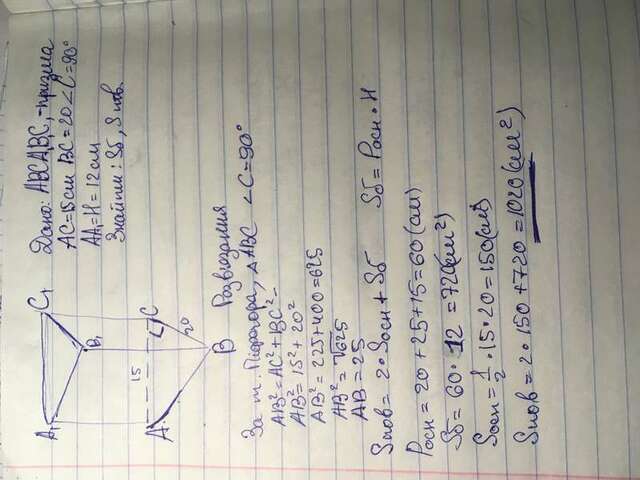 Дано: ABCA₁B₁C₁ - призма
AC=15см BC=20 ∠C=90°
AA₁=H=12см
Знайти: Sб, Sпов.
A₁
C₁
B₁
15
A
C
20
B
Розвязання
За т. Піфагора, △ABC ∠C=90°
AB²=AC²+BC²-
AB²=15²+20²
AB²=225+400=625
AB²=√625
AB=25
Sпов=2·Sосн+Sб Sб=Pосн·H
Pосн=20+25+15=60(см)
Sб=60·12=720(см²)
Sосн=1/2·15·20=150(см²)
Sпов=2·150+720=1020(см²)